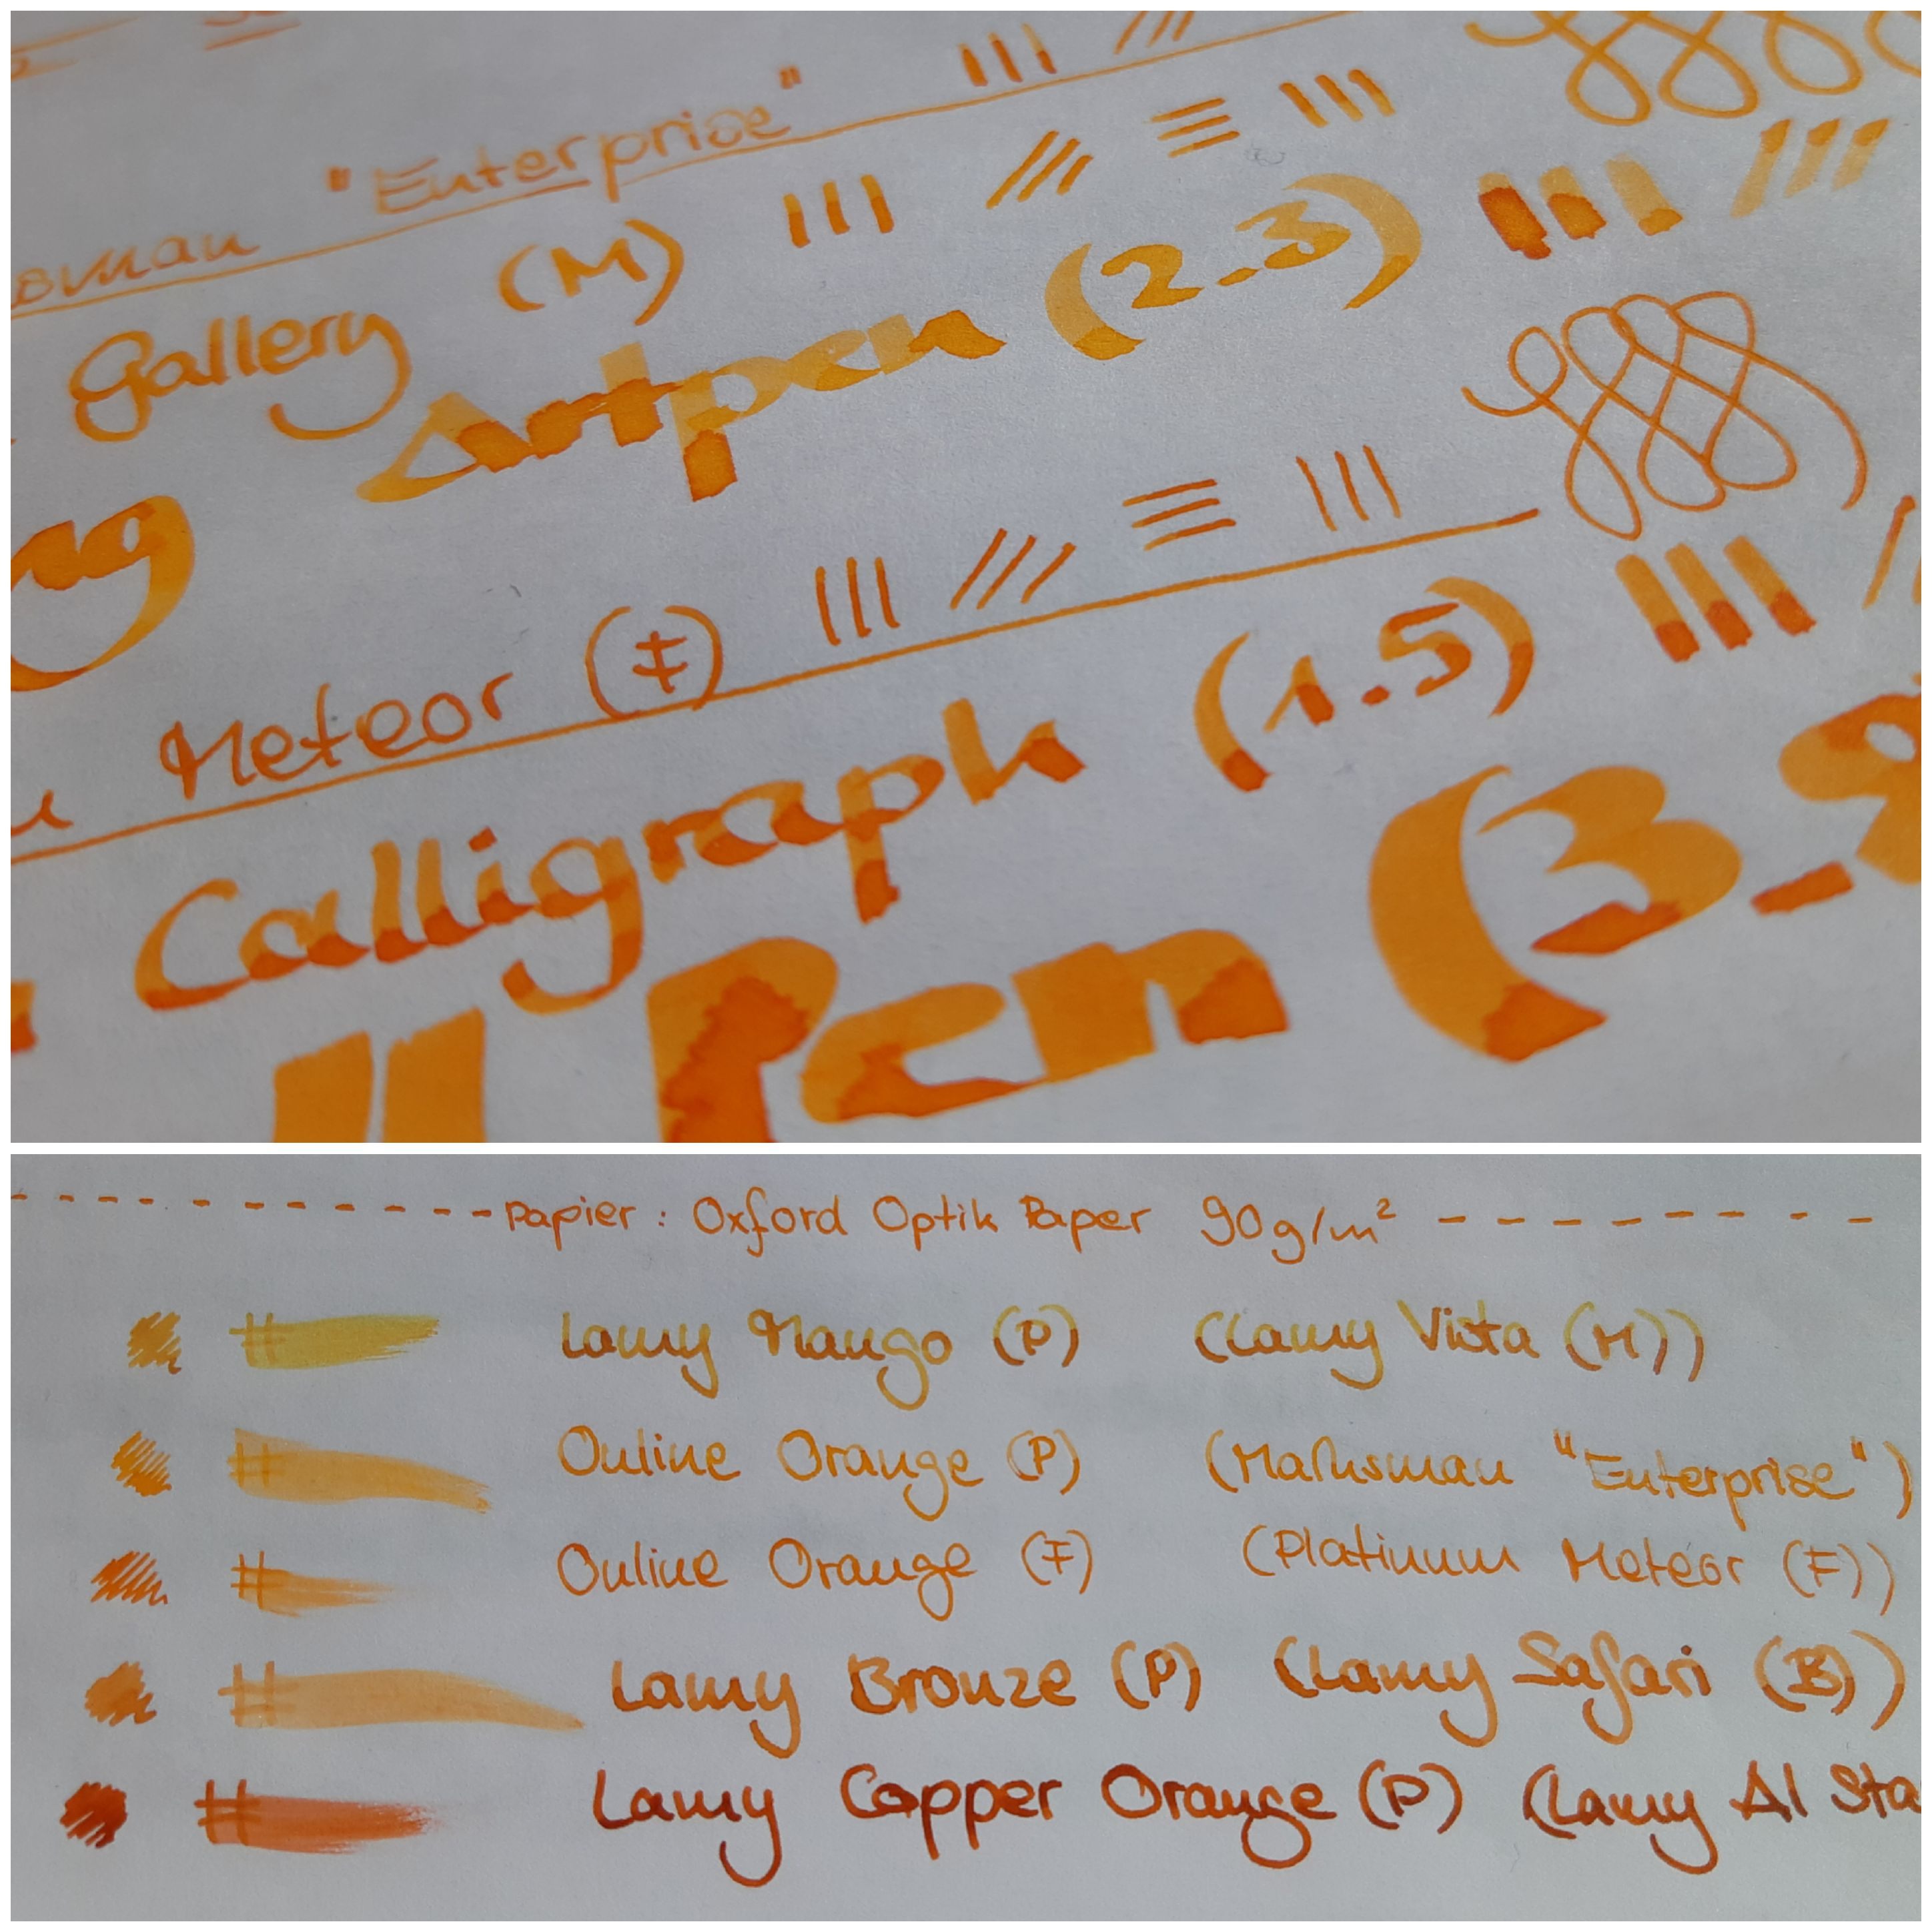 "Enterprise"
Gallery (M)
Artpen (2.3)
Meteor (F)
Calligraph (1.5)
ll Pen (3.8
- - - - - - - - - Papier : Oxford Optik Paper 90g/m² - - - - - - - -
# Lamy Mango (P) (Lamy Vista (M))
# Online Orange (P) (Marksman "Enterprise")
# Online Orange (F) (Platinum Meteor (F))
# Lamy Bronze (P) (Lamy Safari (B))
# Lamy Copper Orange (P) (Lamy Al Sta